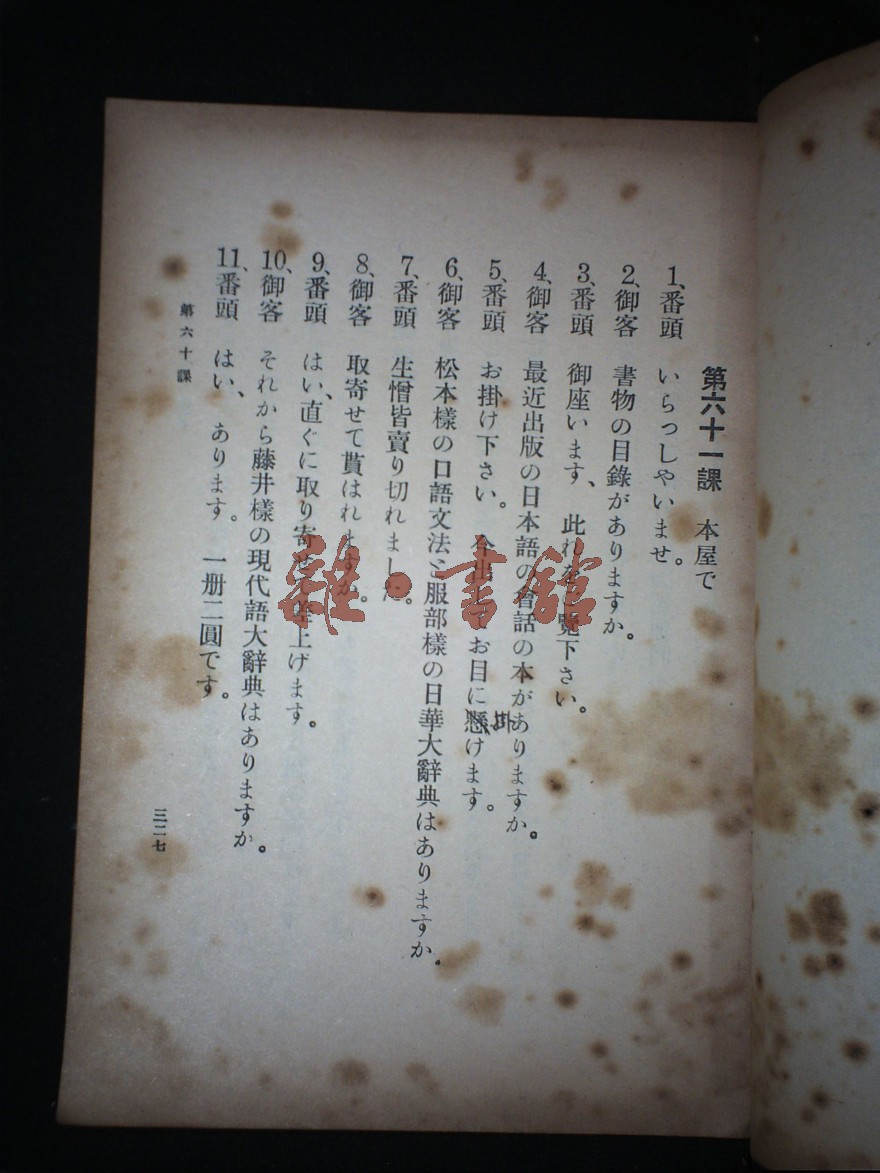 第六十一課　本屋で
1、番頭　いらっしやいませ。
2、御客　書物の目錄がありますか。
3、番頭　御座います、此れを　覽下さい。
4、御客　最近出版の日本語の會話の本がありますか。
5、番頭　お掛け下さい。今出　てお目に懸けます。
掛
6、御客　松本樣の口語文法と服部樣の日華大辭典はありますか。
7、番頭　生憎皆賣り切れました。
8、御客　取寄せて貰はれますか。
9、番頭　はい、直ぐに取り寄せて差上げます。
10、御客　それから藤井樣の現代語大辭典はありますか。
11、番頭　はい、あります。一册二圓です。
第六十課
三二七
雜・書館